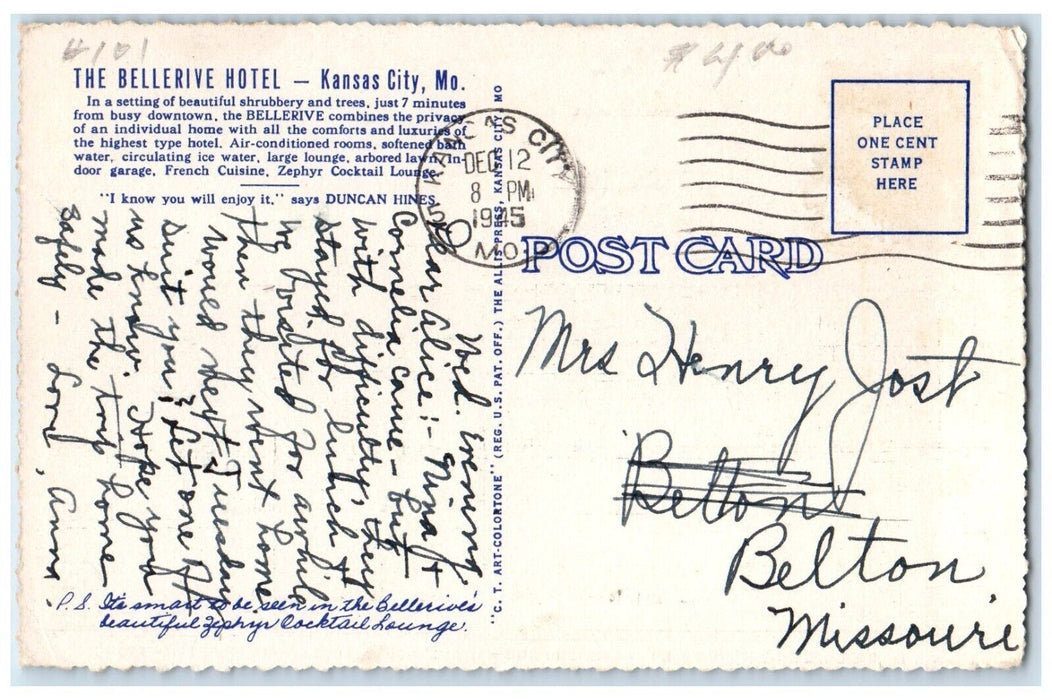 4101
$4.00
THE BELLERIVE HOTEL — Kansas City, Mo.
In a setting of beautiful shrubbery and trees, just 7 minutes
from busy downtown, the BELLERIVE combines the privacy
of an individual home with all the comforts and luxuries of
the highest type hotel. Air-conditioned rooms, softened bath
water, circulating ice water, large lounge, arbored lawn, In-
door garage, French Cuisine, Zephyr Cocktail Lounge.
"I know you will enjoy it." says DUNCAN HINES.
KANSAS CITY
DEC 12
8 PM
1945
MO.
PLACE
ONE CENT
STAMP
HERE
POST CARD
"C. T. ART-COLORTONE" (REG. U. S. PAT. OFF.) THE ALLIS PRESS, KANSAS CITY MO
Wed. Evening.
Dear Alice:- Nina &
Cornelia came - but
with difficulty; they
stayed for lunch &
we visited for awhile
then they went home
Would next Tuesday
suit you? Let one of
us know. Hope you
made the trip home
safely - Love, Anna.
P.S. Its smart to be seen in the Bellerive's
beautiful Zephyr Cocktail Lounge.
Mrs Henry Jost
Belton
Belton
Missouri